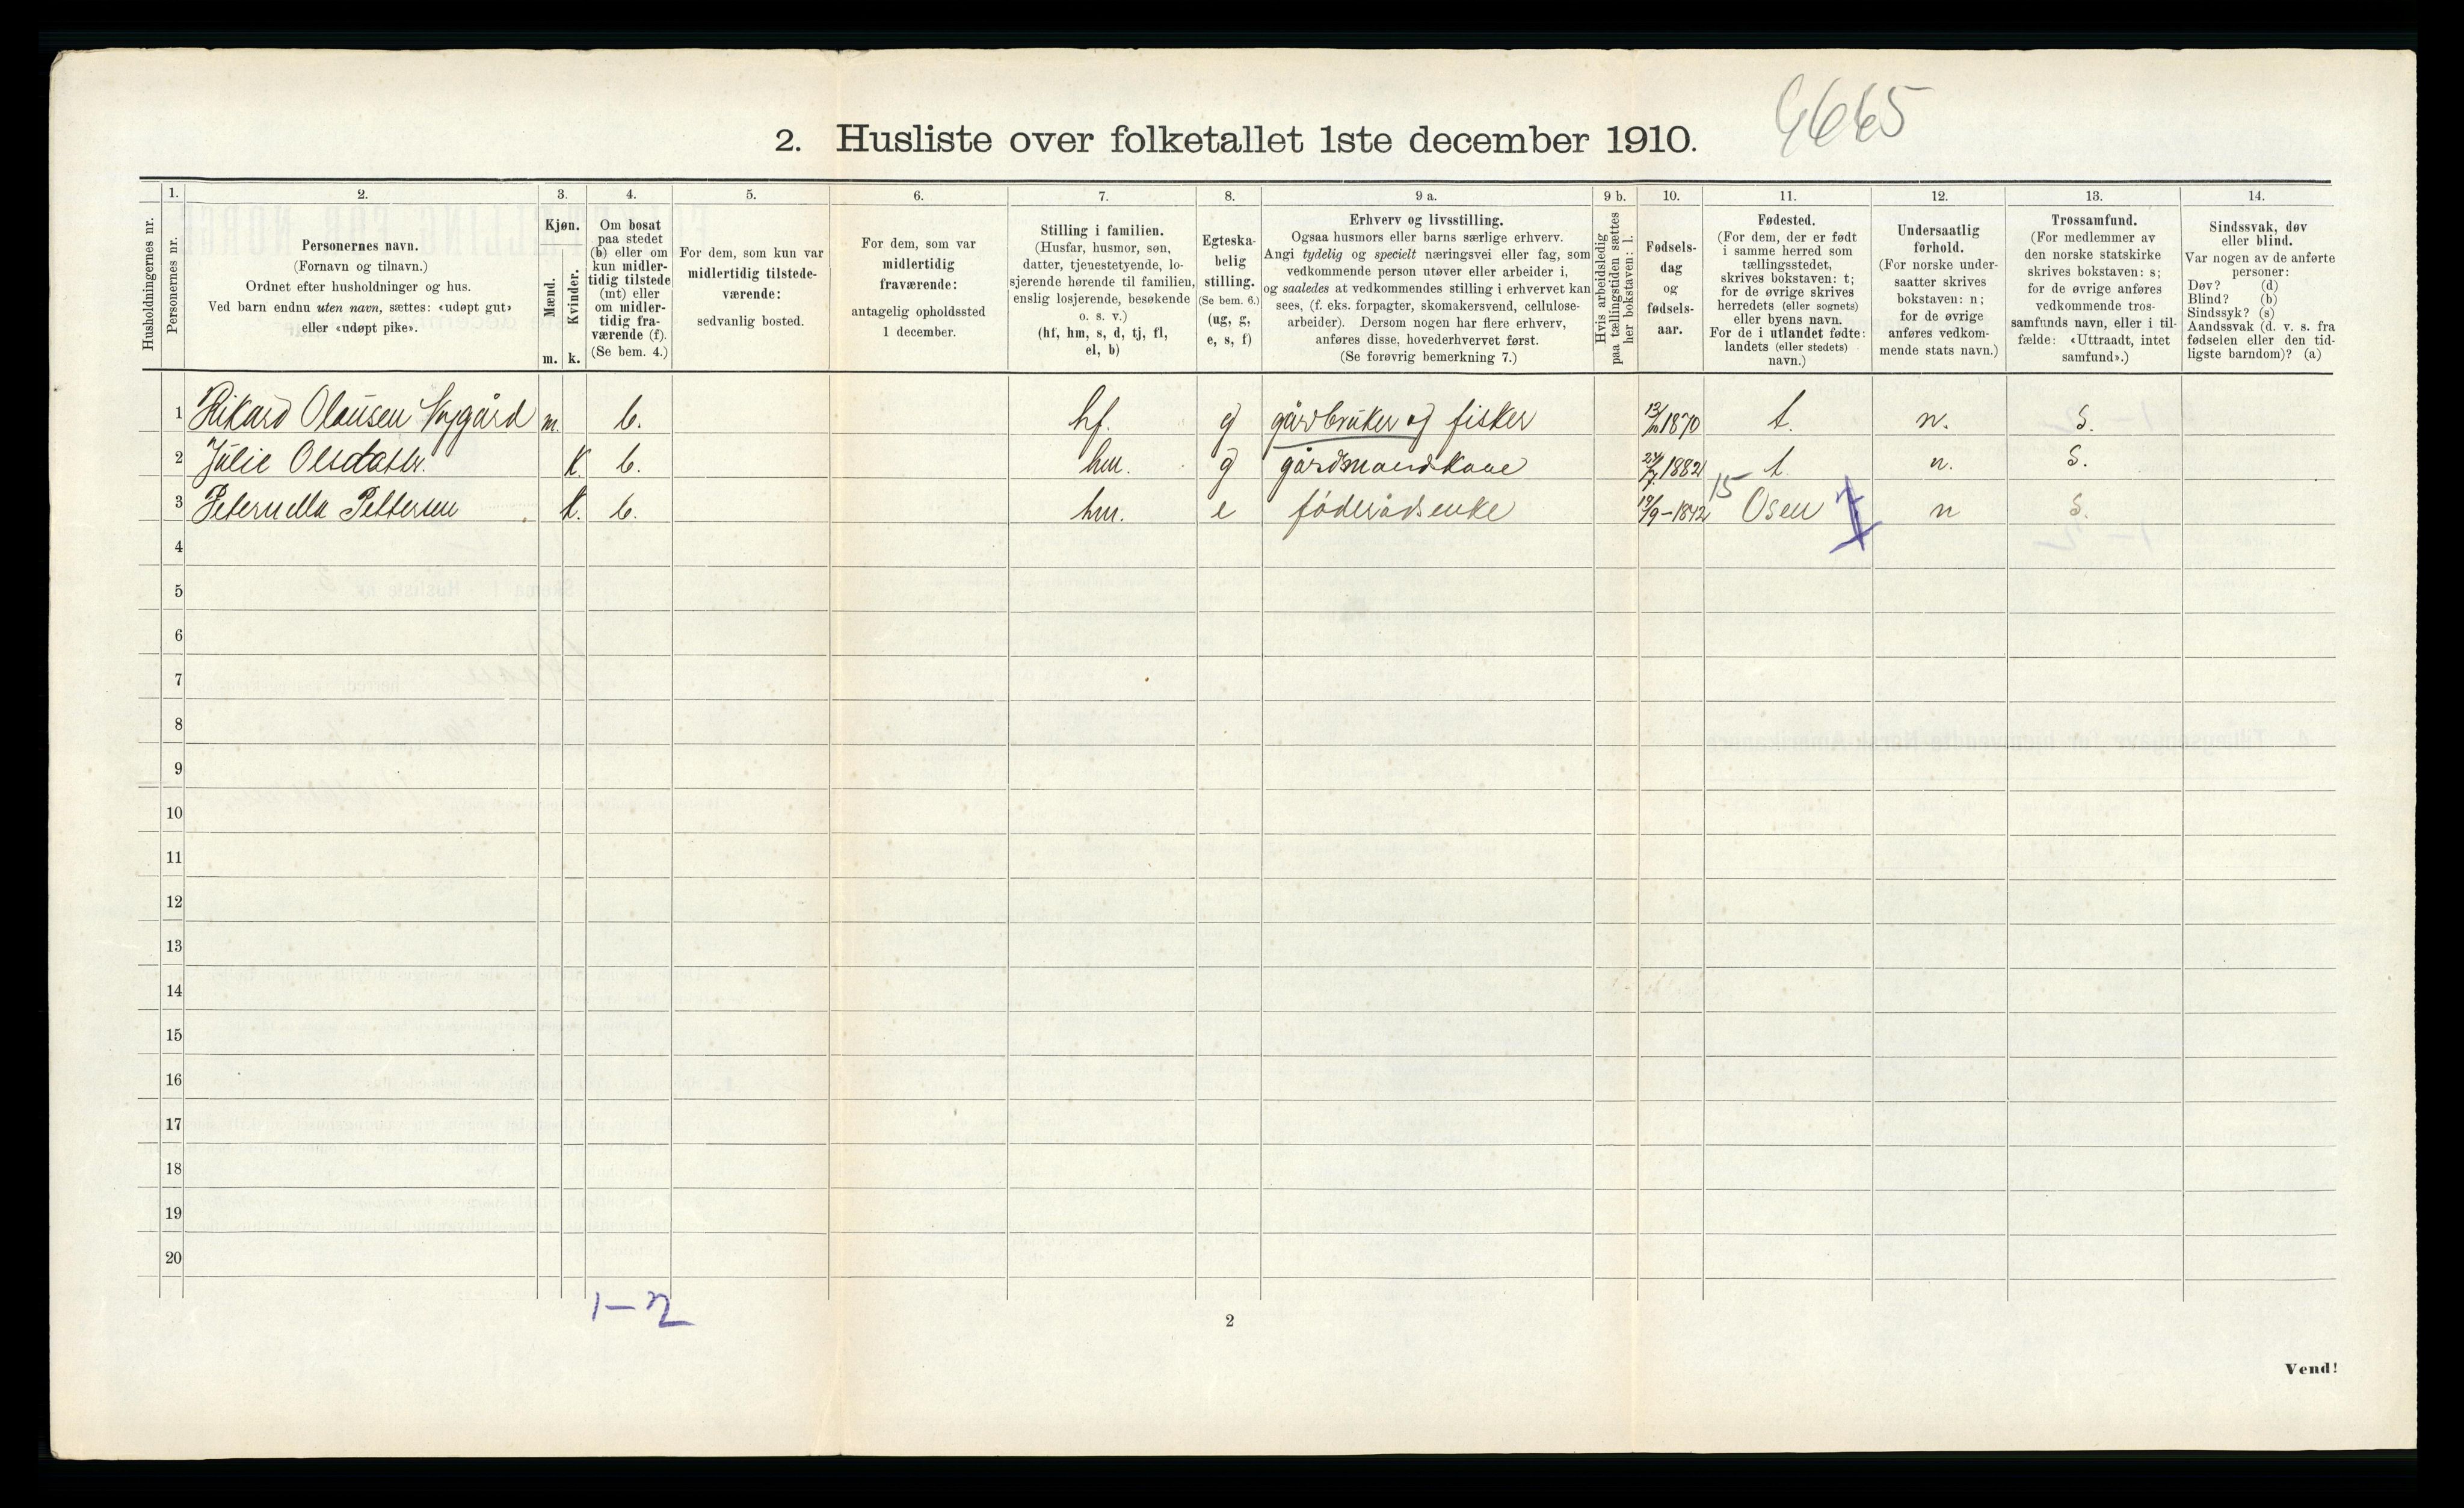 4665
2. Husliste over folketallet 1ste december 1910.
Husholdningernes nr.
1.
Personernes nr.
2.
Personernes navn.
(Fornavn og tilnavn.)
Ordnet efter husholdninger og hus.
Ved barn endnu uten navn, sættes: «udøpt gut»
eller «udøpt pike».
3.
Kjøn.
Mænd.
Kvinder.
m. k.
4.
Om bosat
paa stedet
(b) eller om
kun midler-
tidig tilstede
(mt) eller
om midler-
tidig fra-
værende (f).
(Se bem. 4.)
5.
For dem, som kun var
midlertidig tilstede-
værende:
sedvanlig bosted.
6.
For dem, som var
midlertidig
fraværende:
antagelig opholdssted
1 december.
7.
Stilling i familien.
(Husfar, husmor, søn,
datter, tjenestetyende, lo-
sjerende hørende til familien,
enslig losjerende, besøkende
o. s. v.)
(hf, hm, s, d, tj, fl,
el, b)
8.
Egteska-
belig
stilling.
(Se bem. 6.)
(ug, g,
e, s, f)
9 a.
Erhverv og livsstilling.
Ogsaa husmors eller barns særlige erhverv.
Angi tydelig og specielt næringsvei eller fag, som
vedkommende person utøver eller arbeider i,
og saaledes at vedkommendes stilling i erhvervet kan
sees, (f. eks. forpagter, skomakersvend, cellulose-
arbeider). Dersom nogen har flere erhverv,
anføres disse, hovederhvervet først.
(Se forøvrig bemerkning 7.)
9 b.
Hvis arbeidsledig
paa tællingstiden sættes
her bokstaven: l.
10.
Fødsels-
dag
og
fødsels-
aar.
11.
Fødested.
(For dem, der er født
i samme herred som
tællingsstedet,
skrives bokstaven: t;
for de øvrige skrives
herredets (eller sognets)
eller byens navn.
For de i utlandet fødte:
landets (eller stedets)
navn.)
12.
Undersaatlig
forhold.
(For norske under-
saatter skrives
bokstaven: n;
for de øvrige
anføres vedkom-
mende stats navn.)
13.
Trossamfund.
(For medlemmer av
den norske statskirke
skrives bokstaven: s;
for de øvrige anføres
vedkommende tros-
samfunds navn, eller i til-
fælde: «Uttraadt, intet
samfund».)
14.
Sindssvak, døv
eller blind.
Var nogen av de anførte
personer:
Døv? (d)
Blind? (b)
Sindssyk? (s)
Aandssvak (d. v. s. fra
fødselen eller den tid-
ligste barndom)? (a)
1 Rikard Olausen Nygård m. b. hf. g gårdbruker og fisker 1870 t. n. s.
2 Julie Olsdattr. k. b. hm. g gårdmandskone 24/7 1882 t. n. s.
3 Peternella Pettersen k. b. hm. e föderådsenke 19/9-1842 15 Osen n s.
4
5
6
7
8
9
10
11
12
13
14
15
16
17
18
19
20
1-2
2
Vend!